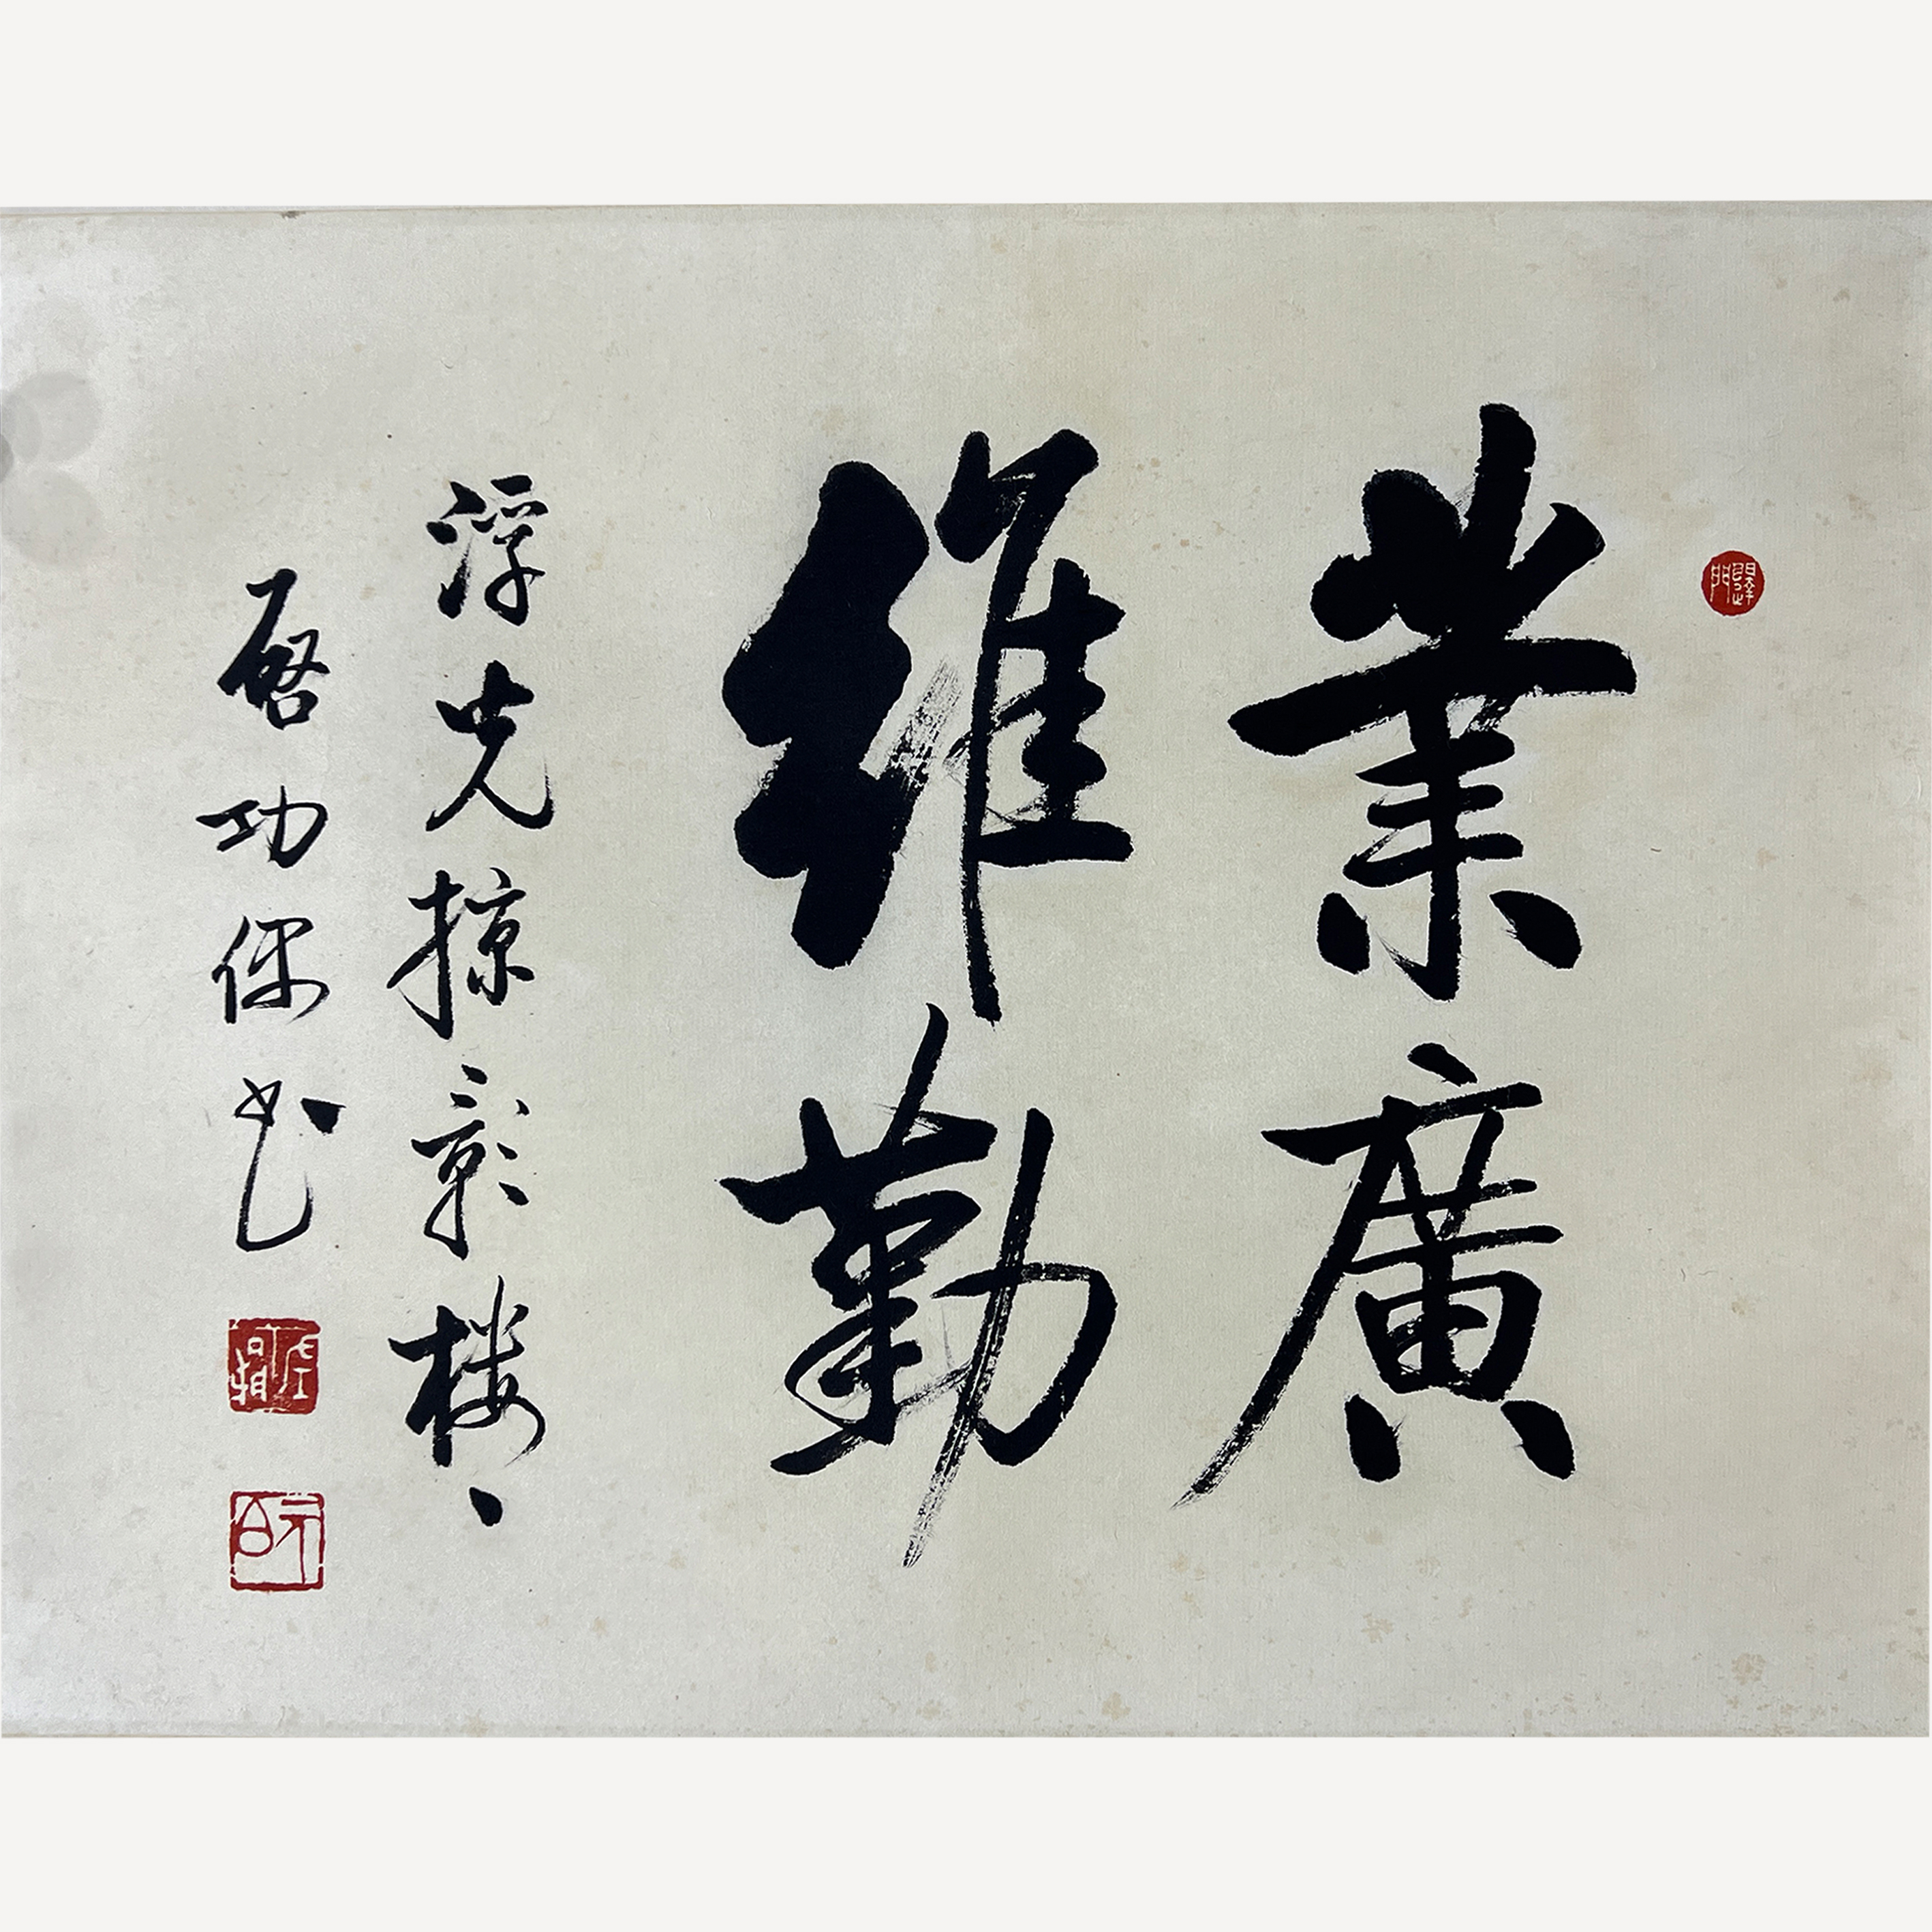 業廣
維勤
浮光掠影樓
啓功偶書